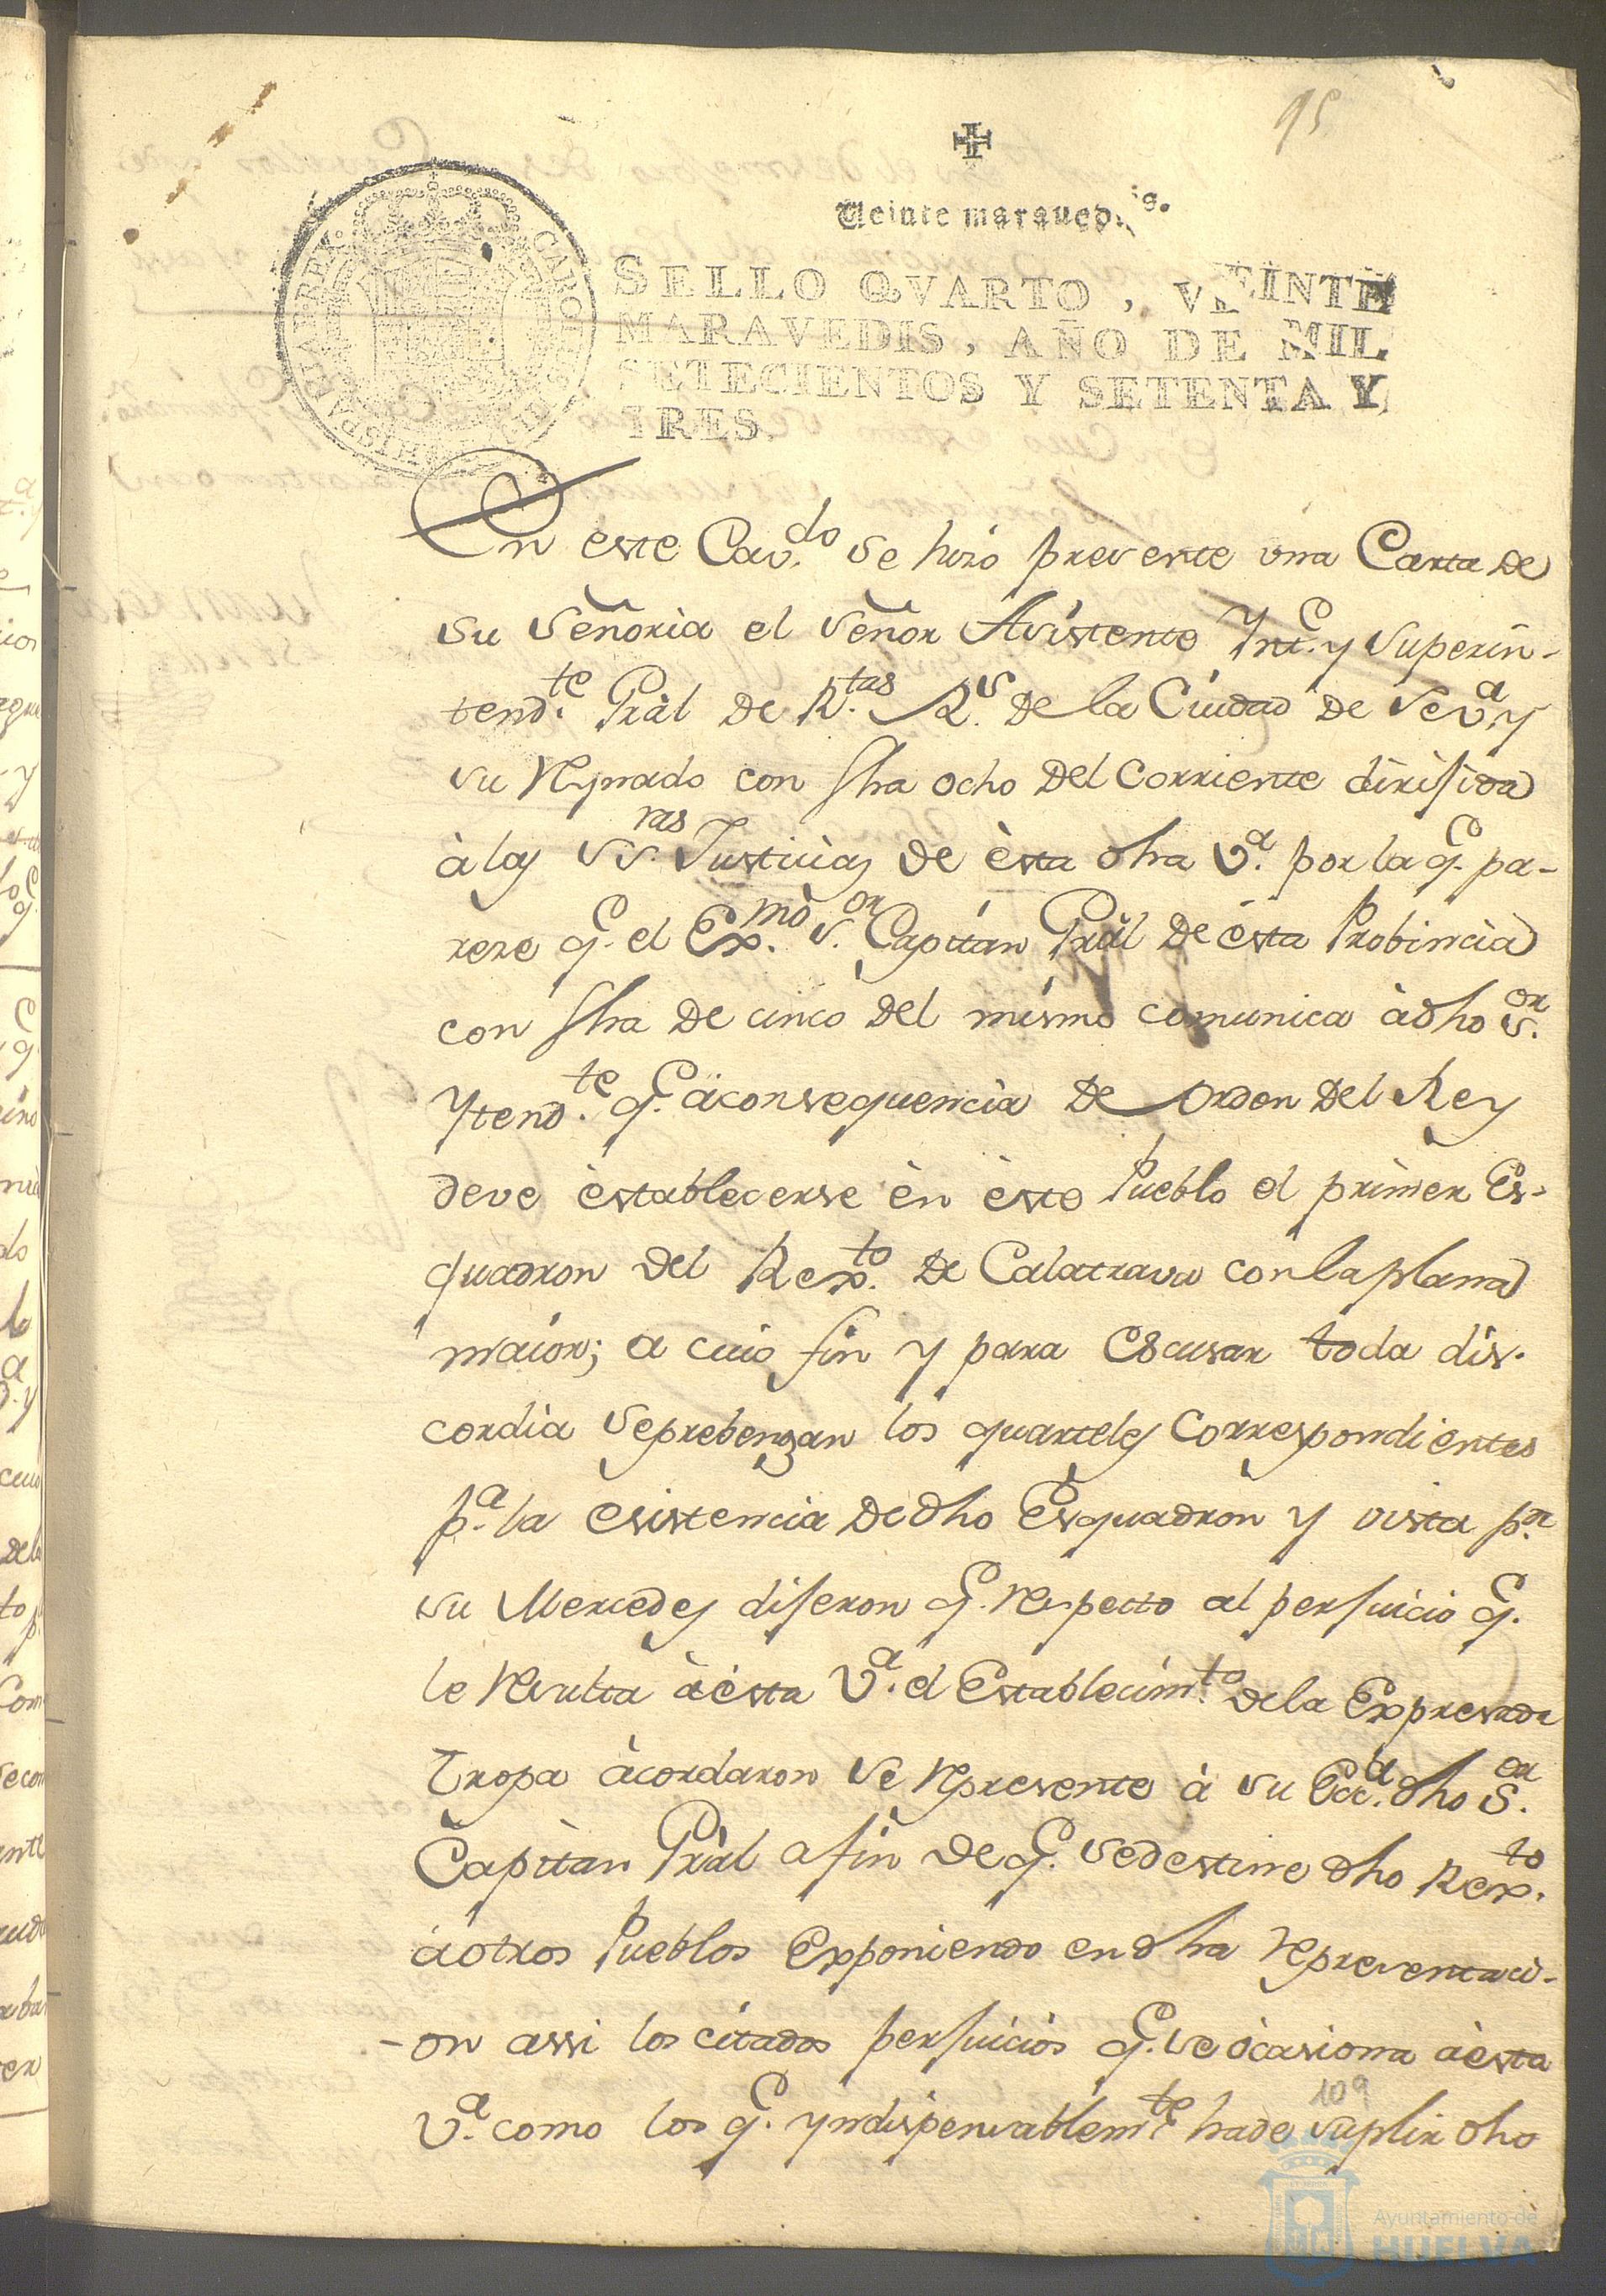 95
Veinte maravedis.
SELLO QVARTO, VEINTE
MARAVEDIS, AÑO DE MIL
SETECIENTOS Y SETENTA Y
TRES.
En este Cav.do se hizo presente vna Carta de
su señoria el señor Asistente Ynt.e y superin-
tend.te Gral de R.tas R.s de la Ciudad de Sev.a y
su Reynado con fha ocho del corriente dirijida
à las SS.ras Justicias de èsta dha V.a por la q.e pa-
reze q.e el Ex.mo S.or Capitan Gràl de èsta Probincia
con fha de cinco del mismo comunica à dho S.or
Ytend.te q.e àconsequencia de orden del Rey
deve èstablecerse èn èste Pueblo el primer Es-
quadron del Rex.to de Calatrava con la plana
maior; a cuio fin y para escusar toda dis-
cordia se prebengan los quarteles correspondientes
p.a la esistencia de dho Esquadron y vista p.r
su Mercedes dijeron q.e respecto al perjuicio q.e
le resulta à èsta V.a el establecim.to de la Expresada
tropa àcordaron se represente à su Exc.a dho S.or
Capitan Gràl a fin de q.e se destine dho Rex.to
à otros Pueblos exponiendo en dha representaci-
-on assi los citados perjuicios q.e se òcasiona à èsta
V.a como los q.e yndispensablem.te hade suplir dho
109
Ayuntamiento de
HUELVA